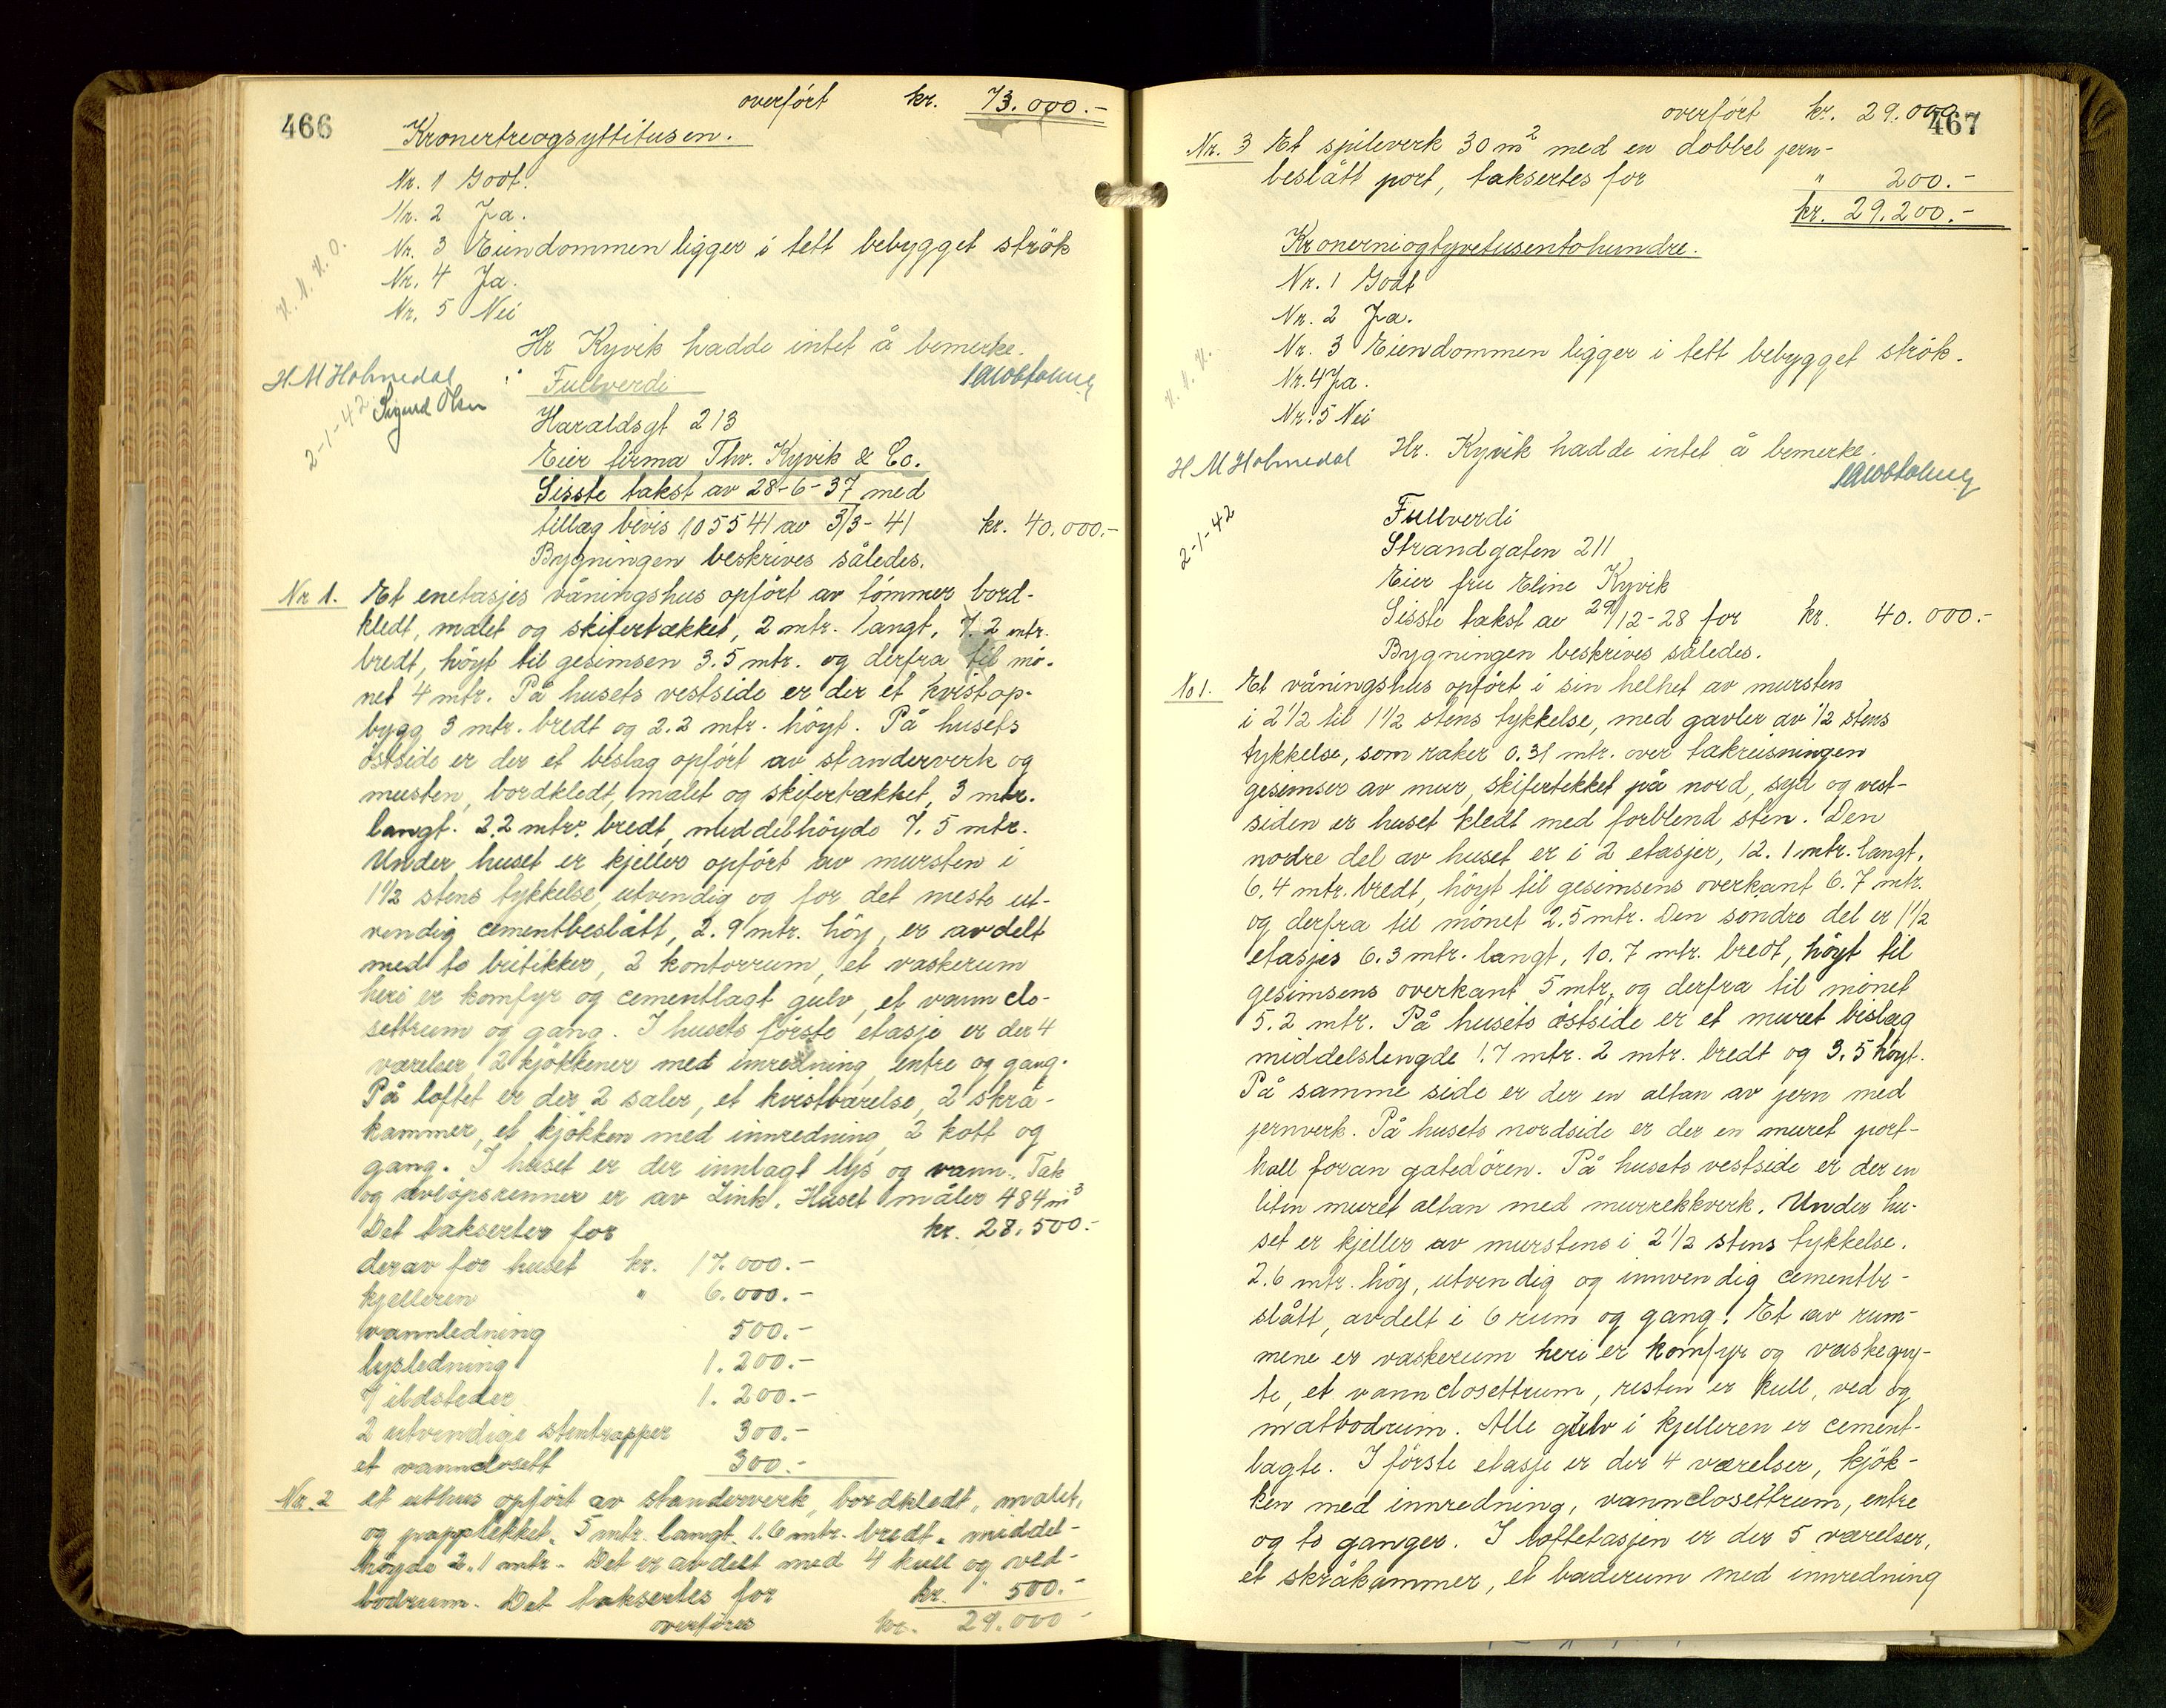 466
overført kr. 73.000.-
Kronertreogsyttitusen.
Nr. 1 Godt.
Nr. 2 Ja.
Nr. 3 Eiendommen ligger i tett bebygget strök
Nr. 4 Ja.
Nr. 5 Nei
Hr Kyvik hadde intet å bemerke.
H M Holmedal
Sigurd Olsen
2-1-42
Fullverdi
Haraldsgt 213
Eier firma Thv. Kyvik & Co.
Sisste takst av 28-6-37 med
tillæg bevis 105541 av 3/3-41 kr. 40.000.-
Bygningen beskrives således.
Nr 1. Et enetasjes våningshus opført av tömmer bord-
kledt, malet og skifertækket, 2 mtr. langt, 7.2 mtr.
bredt, höyt til gesimsen 3.5 mtr. og derfra til mö-
net 4 mtr. På husets vestside er der et kvistop-
bygg 3 mtr. bredt og 2.2 mtr. höyt. På husets
östside er der et beslag opfört av standerverk og
musten, bordkledt, malet og skifertækket, 3 mtr.
langt. 2.2 mtr. bredt, middelhöyde 7.5 mtr.
Under huset er kjeller opfört av mursten i
1½ stens tykkelse, utvendig og for det meste ut-
vendig cementbeslått, 2.9 mtr. höy, er avdelt
med to butikker, 2 kontorrum, et vaskerum
heri er komfyr og cementlagt gulv, et vann clo-
settrum og gang. I husets förste etasje er der 4
værelser, 2 kjökkener med innredning, entre og gang.
På loftet er der 2 saler, et kvistværelse, 2 skrå-
kammer, et kjökken med innredning, 2 kott og
gang. I huset er der innlagt lys og vann. Tak
og avlöpsrenner er av Zink. Huset måler 484 m³
Det takserter for kr. 28.500.-
derav for huset kr. 17.000.-
kjelleren " 6.000.-
vannledning 500.-
lysledning 1.200.-
7 ildsteder 1.200.-
2 utvendige stentrapper 300.-
et vannclosett 300.-
Nr. 2 et uthus opfört av standerverk, bordkledt, malet,
og papptekket, 5 mtr. langt. 1.6 mtr. bredt, middel-
höyde 2.1 mtr. Det er avdelt med 4 kull og ved-
bodrum. Det taksertes for kr. 500.-
overføres kr. 29.000-
467
overfört kr. 29.000
Nr. 3 Et spileverk 30 m² med en dobbel jern-
beslått port, taksertes for " 200.-
kr. 29.200.-
Kronerniogtyvetusentohundre.
Nr. 1 Godt
Nr. 2 Ja.
Nr. 3 Eiendommen ligger i tett bebygget strök.
Nr. 4 Ja.
Nr. 5 Nei
Hr. Kyvik hadde intet å bemerke.
H M Holmedal
2-1-42
Fullverdi
Strandgaten 211
Eier fru Eline Kyvik
Sisste takst av 29/12-28 for kr. 40.000.-
Bygningen beskrives således.
No 1. Et våningshus opfört i sin helhet av mursten
i 2½ til 1½ stens tykkelse, med gavler av ½ stens
tykkelse, som raker 0.31 mtr. over takreisningen
gesimser av mur, skifertekket på nord, syd og vest-
siden er huset kledt med forblend sten. Den
nordre del av huset er i 2 etasjer, 12.1 mtr. langt,
6.4 mtr. bredt, höyt til gesimsens overkant 6.7 mtr.
og derfra til mönet 2.5 mtr. Den söndre del er 1½
etasjes 6.3 mtr. langt, 10.7 mtr. bredt, höyt til
gesimsens overkant 5 mtr, og derfra til mönet
5.2 mtr. På husets östside er et muret bislag
middelslengde 1.7 mtr. 2 mtr. bredt og 3.5 höyt.
På samme side er der en altan av jern med
jernverk. På husets nordside er der en muret port-
hall foran gatedören. På husets vestside er der en
liten muret altan med murrekkverk. Under hu-
set er kjeller av murstens i 2½ stens tykkelse.
2.6 mtr. höy, utvendig og innvendig cementbe-
slått, avdelt i 6 rum og gang. Et av rum-
mene er vaskerum heri er komfyr og vaskegry-
te, et vannclosettrum, resten er kull, ved og
matbodrum. Alle gulv i kjelleren er cement-
lagte. I förste etasje er der 4 værelser, kjök-
ken med innredning, vannclosettrum, entre
og to ganger. I loftetasjen er der 5 værelser,
et skråkammer, et baderum med innredning